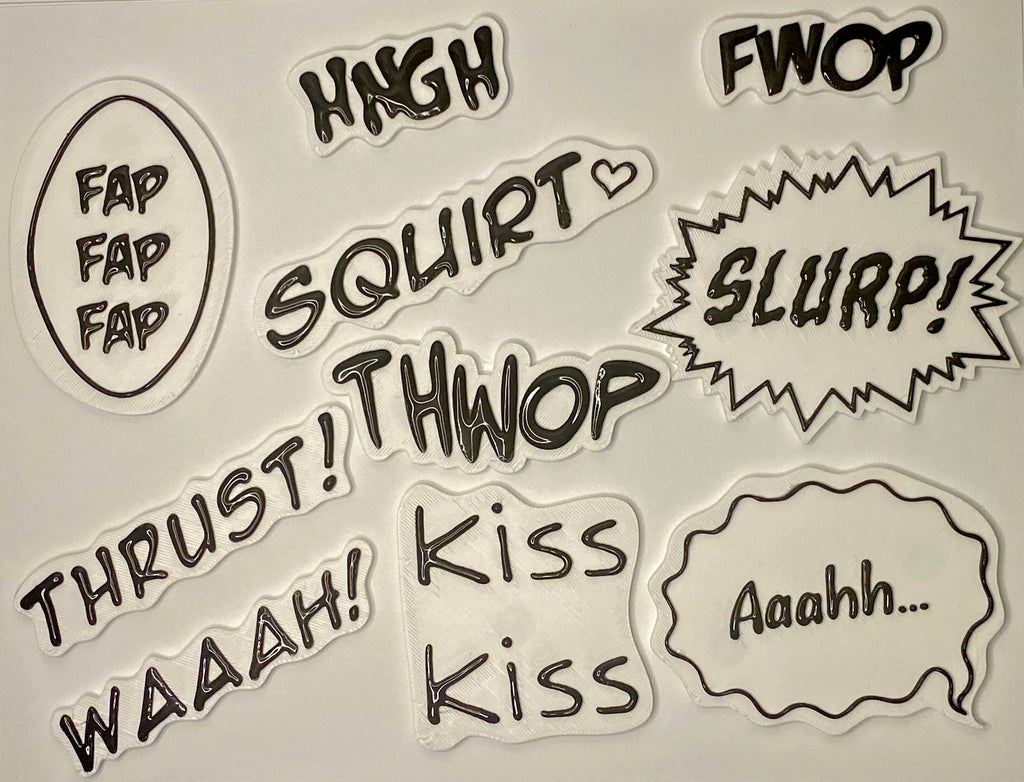 HNGH
FWOP
FAP
FAP
FAP
SQUIRT♡
SLURP!
THWOP
THRUST!
WAAAH!
Kiss
Kiss
Aaahh...